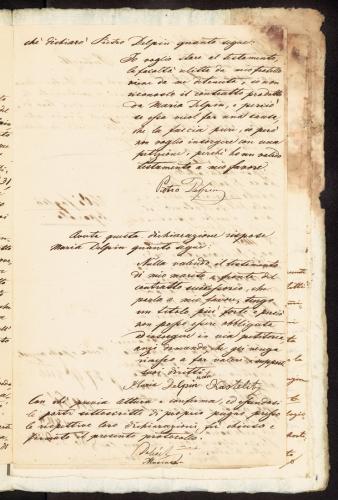 che dichiarò Pietro Delpin quanto segue:
Io voglio stare al testamento,
la facoltà relitta da mio fratello
viene da me ritenuta, io non
riconosco il contratto prodotto
da Maria Delpin, e perciò
se essa vuol far una causa,
che la faccia pure, io però
non voglio insorgere con una
petizione, perchè ho un valido
testamento a mio favore.
Pietro Delpin
Avute questa dichiarazione rispose
Maria Delpin quanto segue:
Nulla valendo il testamento
di mio marito a fronte del
contratto successorio, che
parla a mio favore, tengo
un titolo più forte e perciò
non posso essere obbligata
d'insorgere in via petitoria
anzi domando, che ciò venga
ingiunto a far valere i suppost
suoi diritti.
Maria Delpin
Con che previa lettura e conferma, ed essendosi
le parti sottoscritte di proprio pugno, presso
le rispettive loro dichiarazioni, fu chiuso e
firmato il presente protocollo.